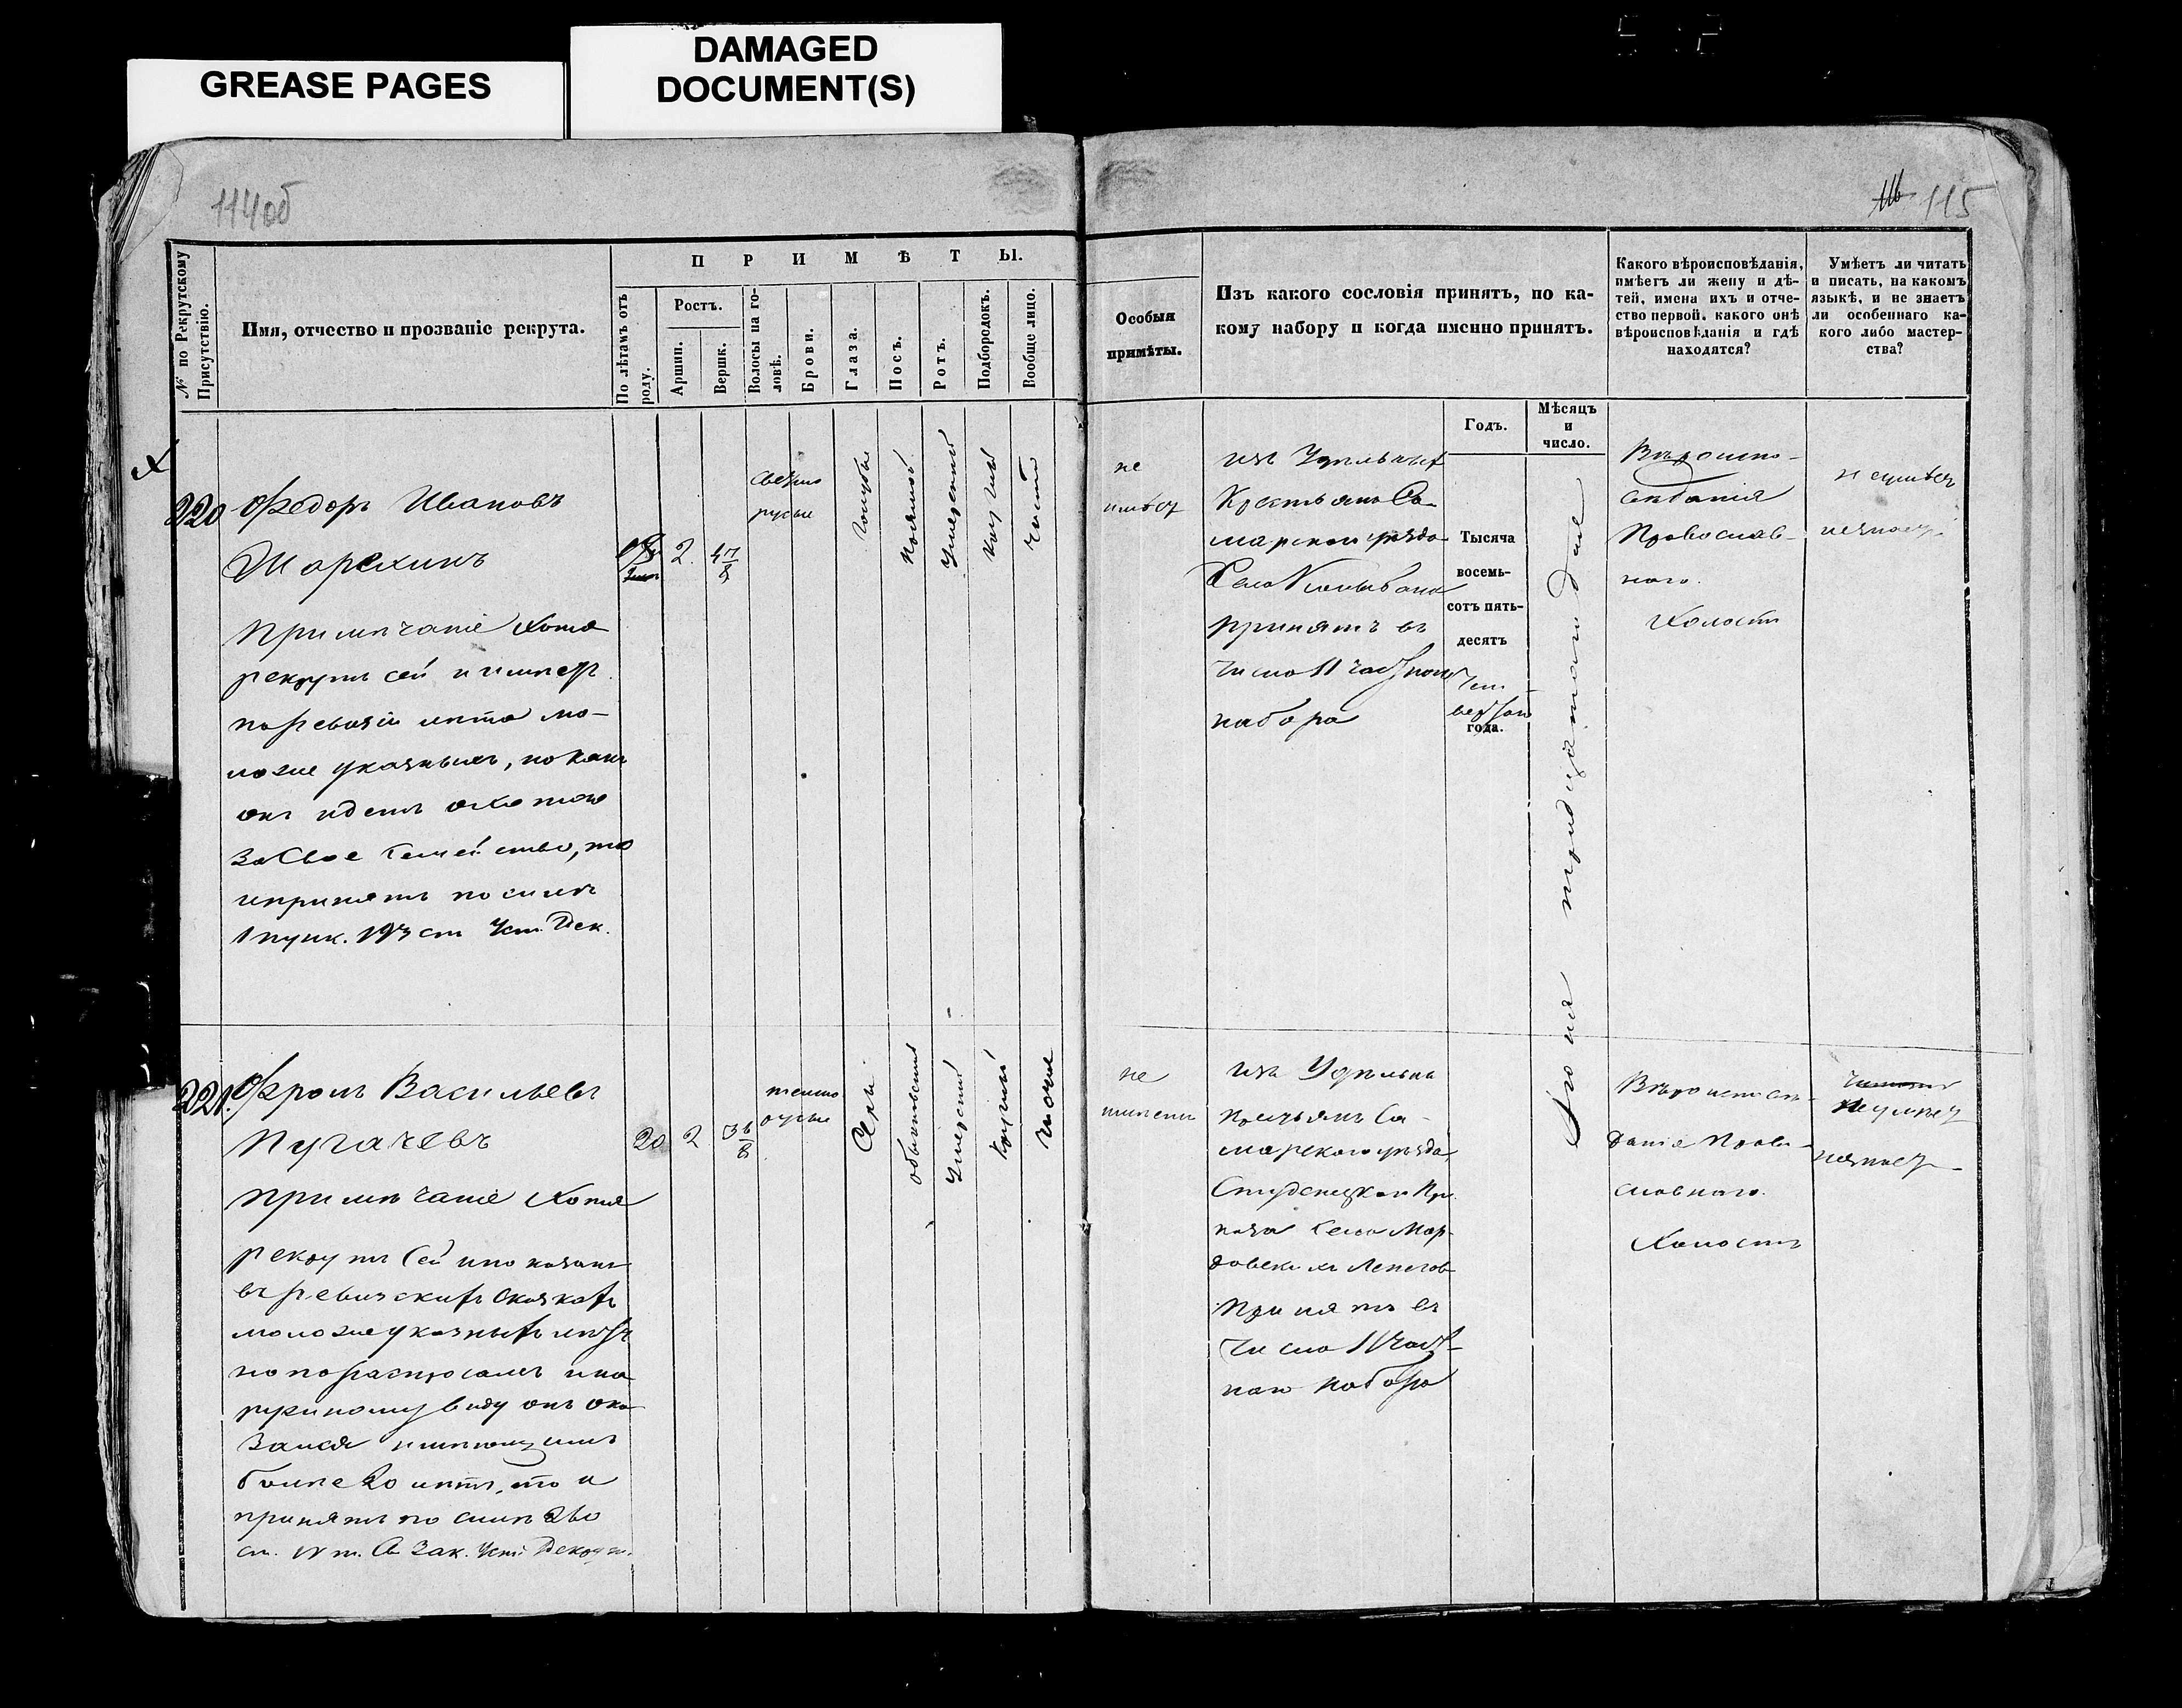 GREASE PAGES
DAMAGED
DOCUMENT(S)
114об
115
№ по Рекрутскому
Присутствію.
Имя, отчество и прозваніе рекрута.
ПРИМѢТЫ.
По лѣтамъ отъ
роду.
Ростъ.
Аршин.
Вершк.
Волосы на го-
ловѣ.
Брови.
Глаза.
Носъ.
Ротъ.
Подбородокъ.
Вообще лицо.
Особыя
примѣты.
Изъ какого сословія принятъ, по ка-
кому набору и когда именно принятъ.
Годъ.
Мѣсяцъ
и
число.
Какого вѣроисповѣданія,
имѣетъ ли жену и дѣ-
тей, имена ихъ и отче-
ство первой, какого онѣ
вѣроисповѣданія и гдѣ
находятся?
Умѣетъ ли читать
и писать, на какомъ
языкѣ, и не знаетъ
ли особеннаго ка-
кого либо мастер-
ства?
220
Федоръ Ивановъ
Шорехинъ
Примѣчаніе Хотя
рекрутъ сей и имѣет
по ревизіи лѣта мо-
ложе указныхъ, но какъ
онъ идетъ охотою
за свое семейство, то
и принятъ по силѣ
1 пунк. 193 ст Уст. Рек.
2
4 7/8
свѣтло
русые
голубые
прямой
умеренный
круглый
чистое
не
имѣет
изъ Удѣльных
Крестьянъ Са-
марскаго уѣзда
Села Колывани
принятъ въ
число 11 част наго
набора
Тысяча
восемь-
сотъ пять-
десятъ
чет
вертаго
года.
Іюня тридцатаго дня
Вѣроиспо-
вѣданія
Православ-
наго.
Холостъ
не умѣет
не знает.
221.
Фролъ Васильевъ
Пугачевъ
Примѣчаніе Хотя
рекрутъ сей и показанъ
въ ревизскихъ сказкахъ
моложе указныхъ лѣтъ
но по распросамъ и на
ружному виду онъ ока
зался имѣющимъ
болѣе 20 лѣтъ, то и
принятъ по силѣ
ст. IV т. Св Зак. Уст. Рекрут.
20
2
3 6/8
темно
русые
Серы
обыкновенный
умеренный
круглый
чистое
не
имѣетъ
изъ Удѣльны
крестьянъ Са-
марскаго уѣзда,
Студенецкаго При
каза села Мор-
довскихъ Лепягов
принятъ въ
число 11 част-
наго набора
Вѣроисповѣ-
данія Право-
славнаго.
Холостъ
не умѣет
не знает